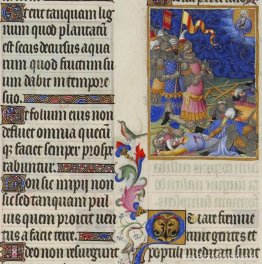 Et erit tanquam lig
num quod plantatū
est secus decursus aqua
rum quod fructum su
um dabit in tempore
suo.
Et folium eius non
defluet omnia quecū
qꝫ faciet semper prospe
rabuntur.
Non sic impii non
sic sed tanquam pul
uis quem proicit uen
tus a facie terre.
Ideo non resurgunt
Quare fremue
runt gentes et
populi meditati sunt